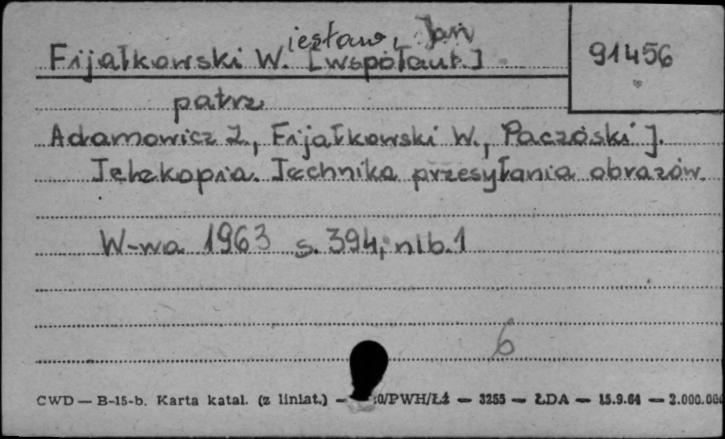 iesław, Jan
Fijałkowski W. [współaut.]
91456
patrz
Adamowicz Z., Fijałkowski W., Paczóski J.
Telekopia. Technika przesyłania obrazów.
W-wa 1963 s. 394, nlb. 1
6
CWD — B-15-b. Karta katal. (z liniat.) — 0/PWH/Łź — 3255 — ŁDA — 15.9.64 — 2.000.000